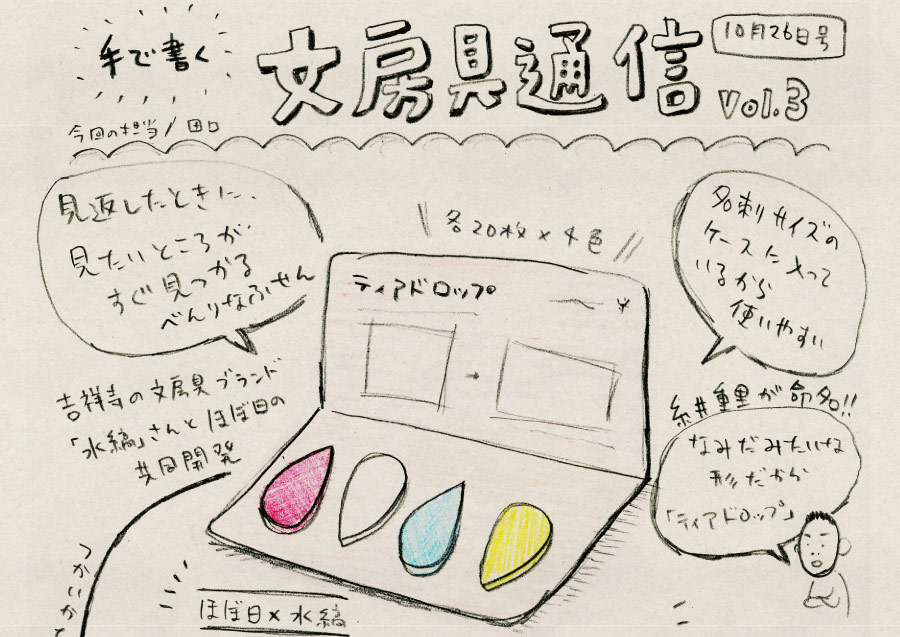 手で書く
文房具通信
10月26日号
vol.3
今回の担当/田口
見返したときに、
見たいところが、
すぐ見つかる
べんりなふせん
各20枚×4色
名刺サイズの
ケースに入って
いるから
使いやすい
ティアドロップ
吉祥寺の文房具ブランド
「水縞」さんとほぼ日の
共同開発
糸井重里が命名!!
なみだみたいな
形だから
「ティアドロップ」
つかいかた
ほぼ日×水縞